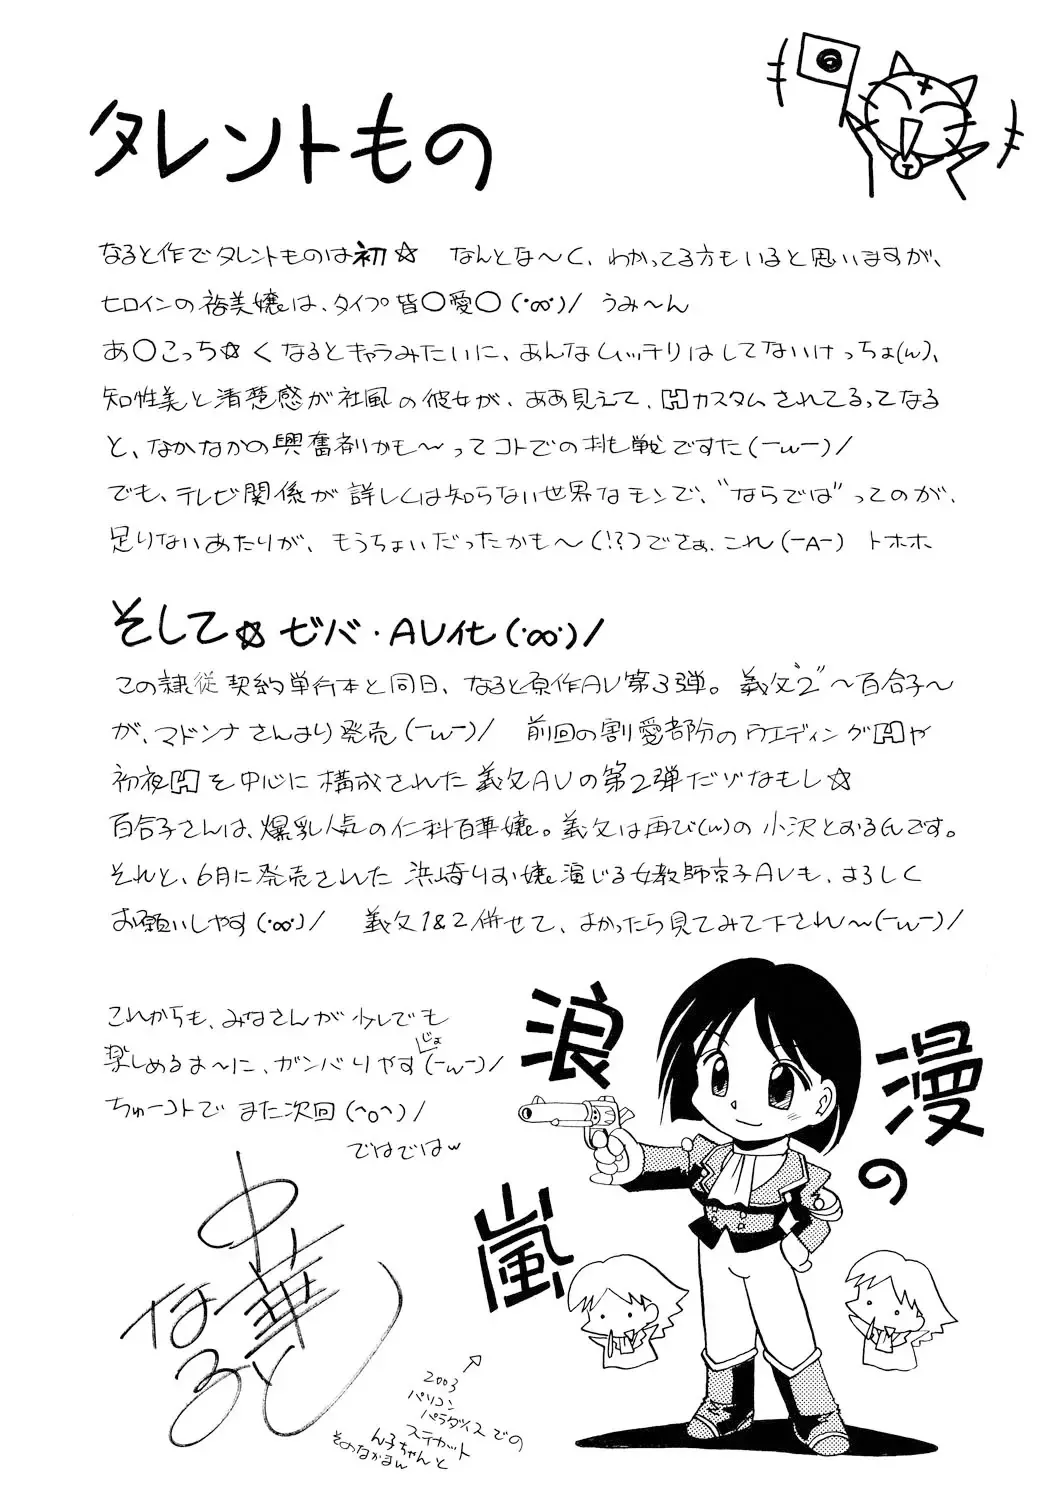 タレントもの
なると作でタレントものは初☆　なんとな〜く、わかってる方もいると思いますが、
ヒロインの裕美嬢は、タイプ皆〇愛〇(・∞・)/　うみ〜ん
あ〇こっち☆くなるとキャラみたいに、あんなムッチリはしてないけっちょ(w)、
知性美と清楚感が社風の彼女が、ああ見えて、Hカスタムされてるってなる
と、なかなかの興奮剤かも〜ってコトでの挑戦ですた(ーwー)/
でも、テレビ関係が詳しくは知らない世界なモンで、“ならでは”ってのが、
足りないあたりが、もうちょいだったかも〜(!?)でさぁ、これ(ーAー)　トホホ
そして☆ ゼバ・AV化(・∞・)/
この隷従契約単行本と同日、なると原作AV第3弾。義父“2”〜百合子〜
が、マドンナさんより発売(ーwー)/　前回の割愛部分のウエディングHや
初夜Hを中心に構成された義父AVの第2弾だゾなもし☆
百合子さんは、爆乳人気の仁科百華嬢。義父は再び(w)の小沢とおるんです。
それと、6月に発売された浜崎りお嬢演じる女教師京子AVも、よろしく
お願いしやす(・∞・)/　義父1&2併せて、よかったら見てみて下され〜(ーwー)/
これからも、みなさんが少しでも
楽しめるよ〜に、ガンバりやす(ーwー)/
じょ
ちゅーコトで また次回(^o^)/
ではではw
中華
なると
浪
漫
の
嵐
2003
パソコン
パラダイスでの
ステカット
ん子ちゃんと
そのなかまw